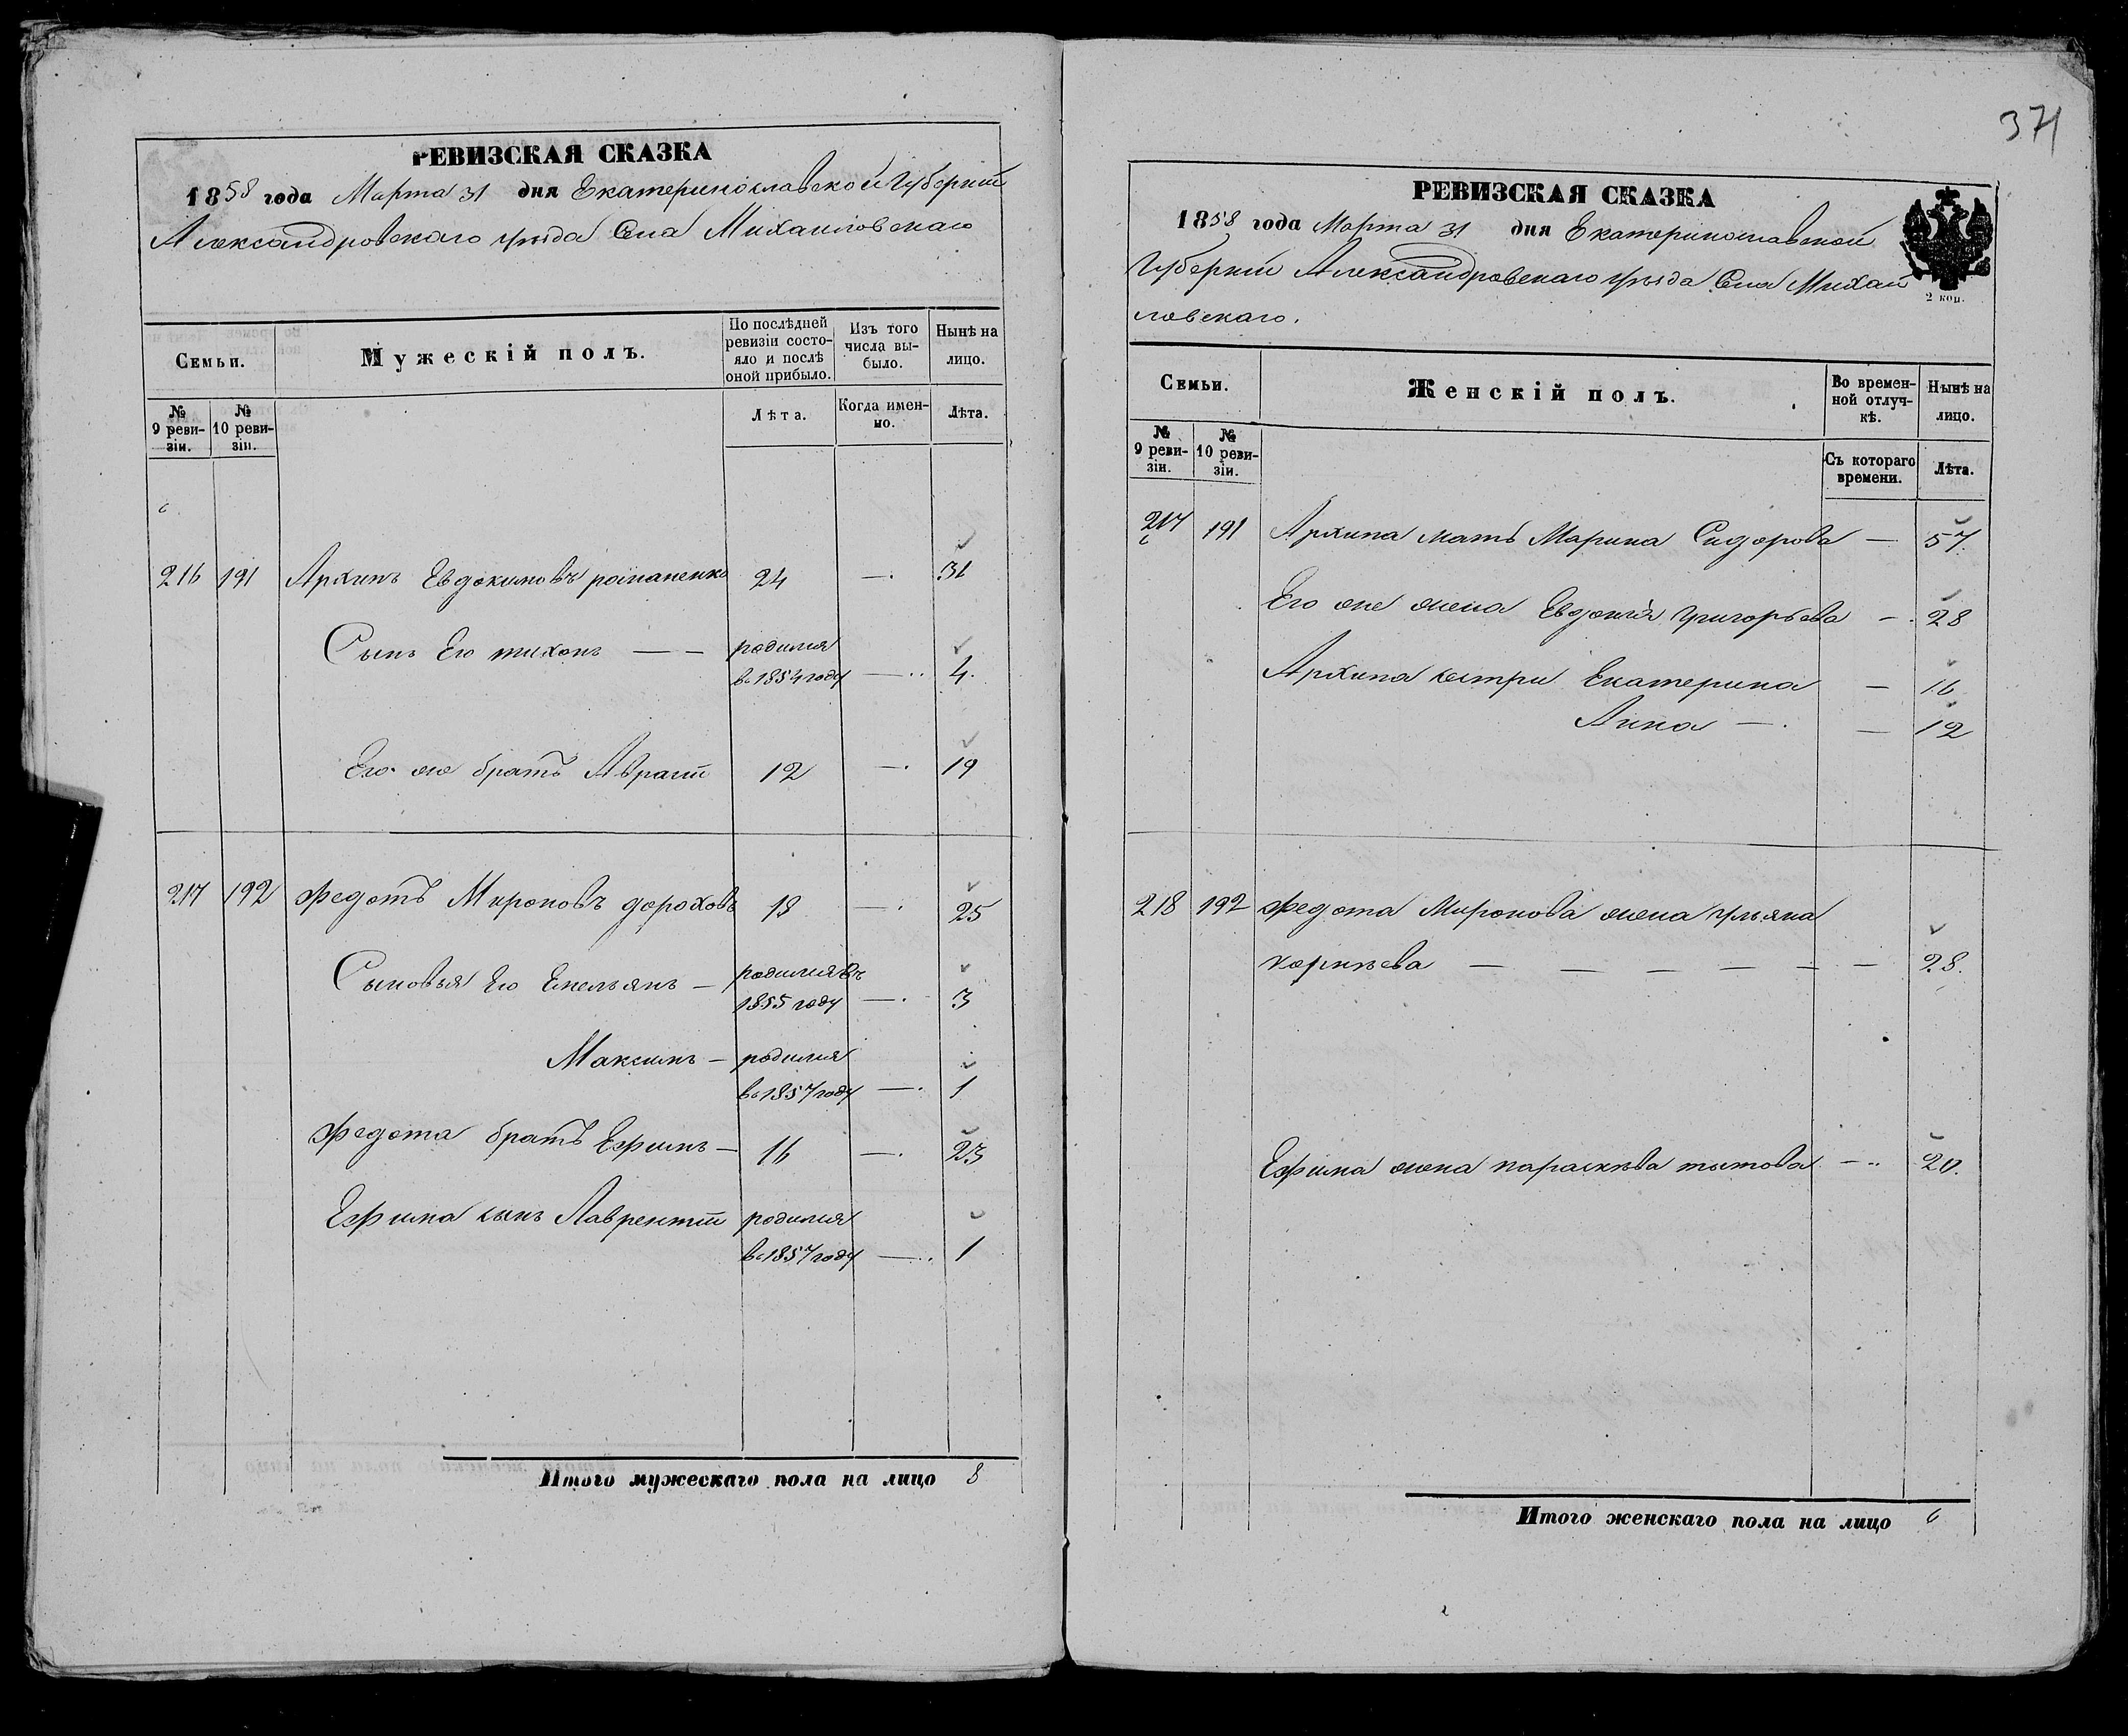 371
РЕВИЗСКАЯ СКАЗКА
1858 года Марта 31 дня Екатеринославской Губернии
Александровскаго уѣзда Села Михаиловскаго
Семьи.
Мужескій полъ.
По послѣдней ревизіи состояло и послѣ оной прибыло.
Изъ того числа выбыло.
Нынѣ на лицо.
№ 9 ревизіи.
№ 10 ревизіи.
Лѣта.
Когда именно.
Лѣта.
216 191 Архипъ Евдокимовъ романенко 24 — 31
Сынъ Его тихонъ — — родился
въ 1854 году — 4.
Его же братъ Аврамъ 12 — 19
217 192 Федотъ Мироновъ дороховъ 18 — 25
Сыновья Его Емельянъ — родился въ
1855 году — 3
Максимъ — родился
въ 1857 году — 1
Федота братъ Ефимъ — 16 — 23
Ефима сынъ Лаврентій родился
въ 1857 году — 1
Итого мужескаго пола на лицо 8
РЕВИЗСКАЯ СКАЗКА
1858 года Марта 31 дня Екатеринославской
Губернии Александровскаго уѣзда Села Михаи
ловскаго.
2 коп.
Семьи.
Женскій полъ.
Во временной отлучкѣ.
Нынѣ на лицо.
№ 9 ревизіи.
№ 10 ревизіи.
Съ котораго времени.
Лѣта.
217 191 Архипа мать Марина Сидорова — 57.
Его же жена Евдокія григорьева — 28
Архипа сестри Екатерина — 16
Анна — — 12
218 192 Федота Миронова жена ульяна
корнѣева — — — — — — 28.
Ефима жена параскѣва титова — 20.
Итого женскаго пола на лицо 6